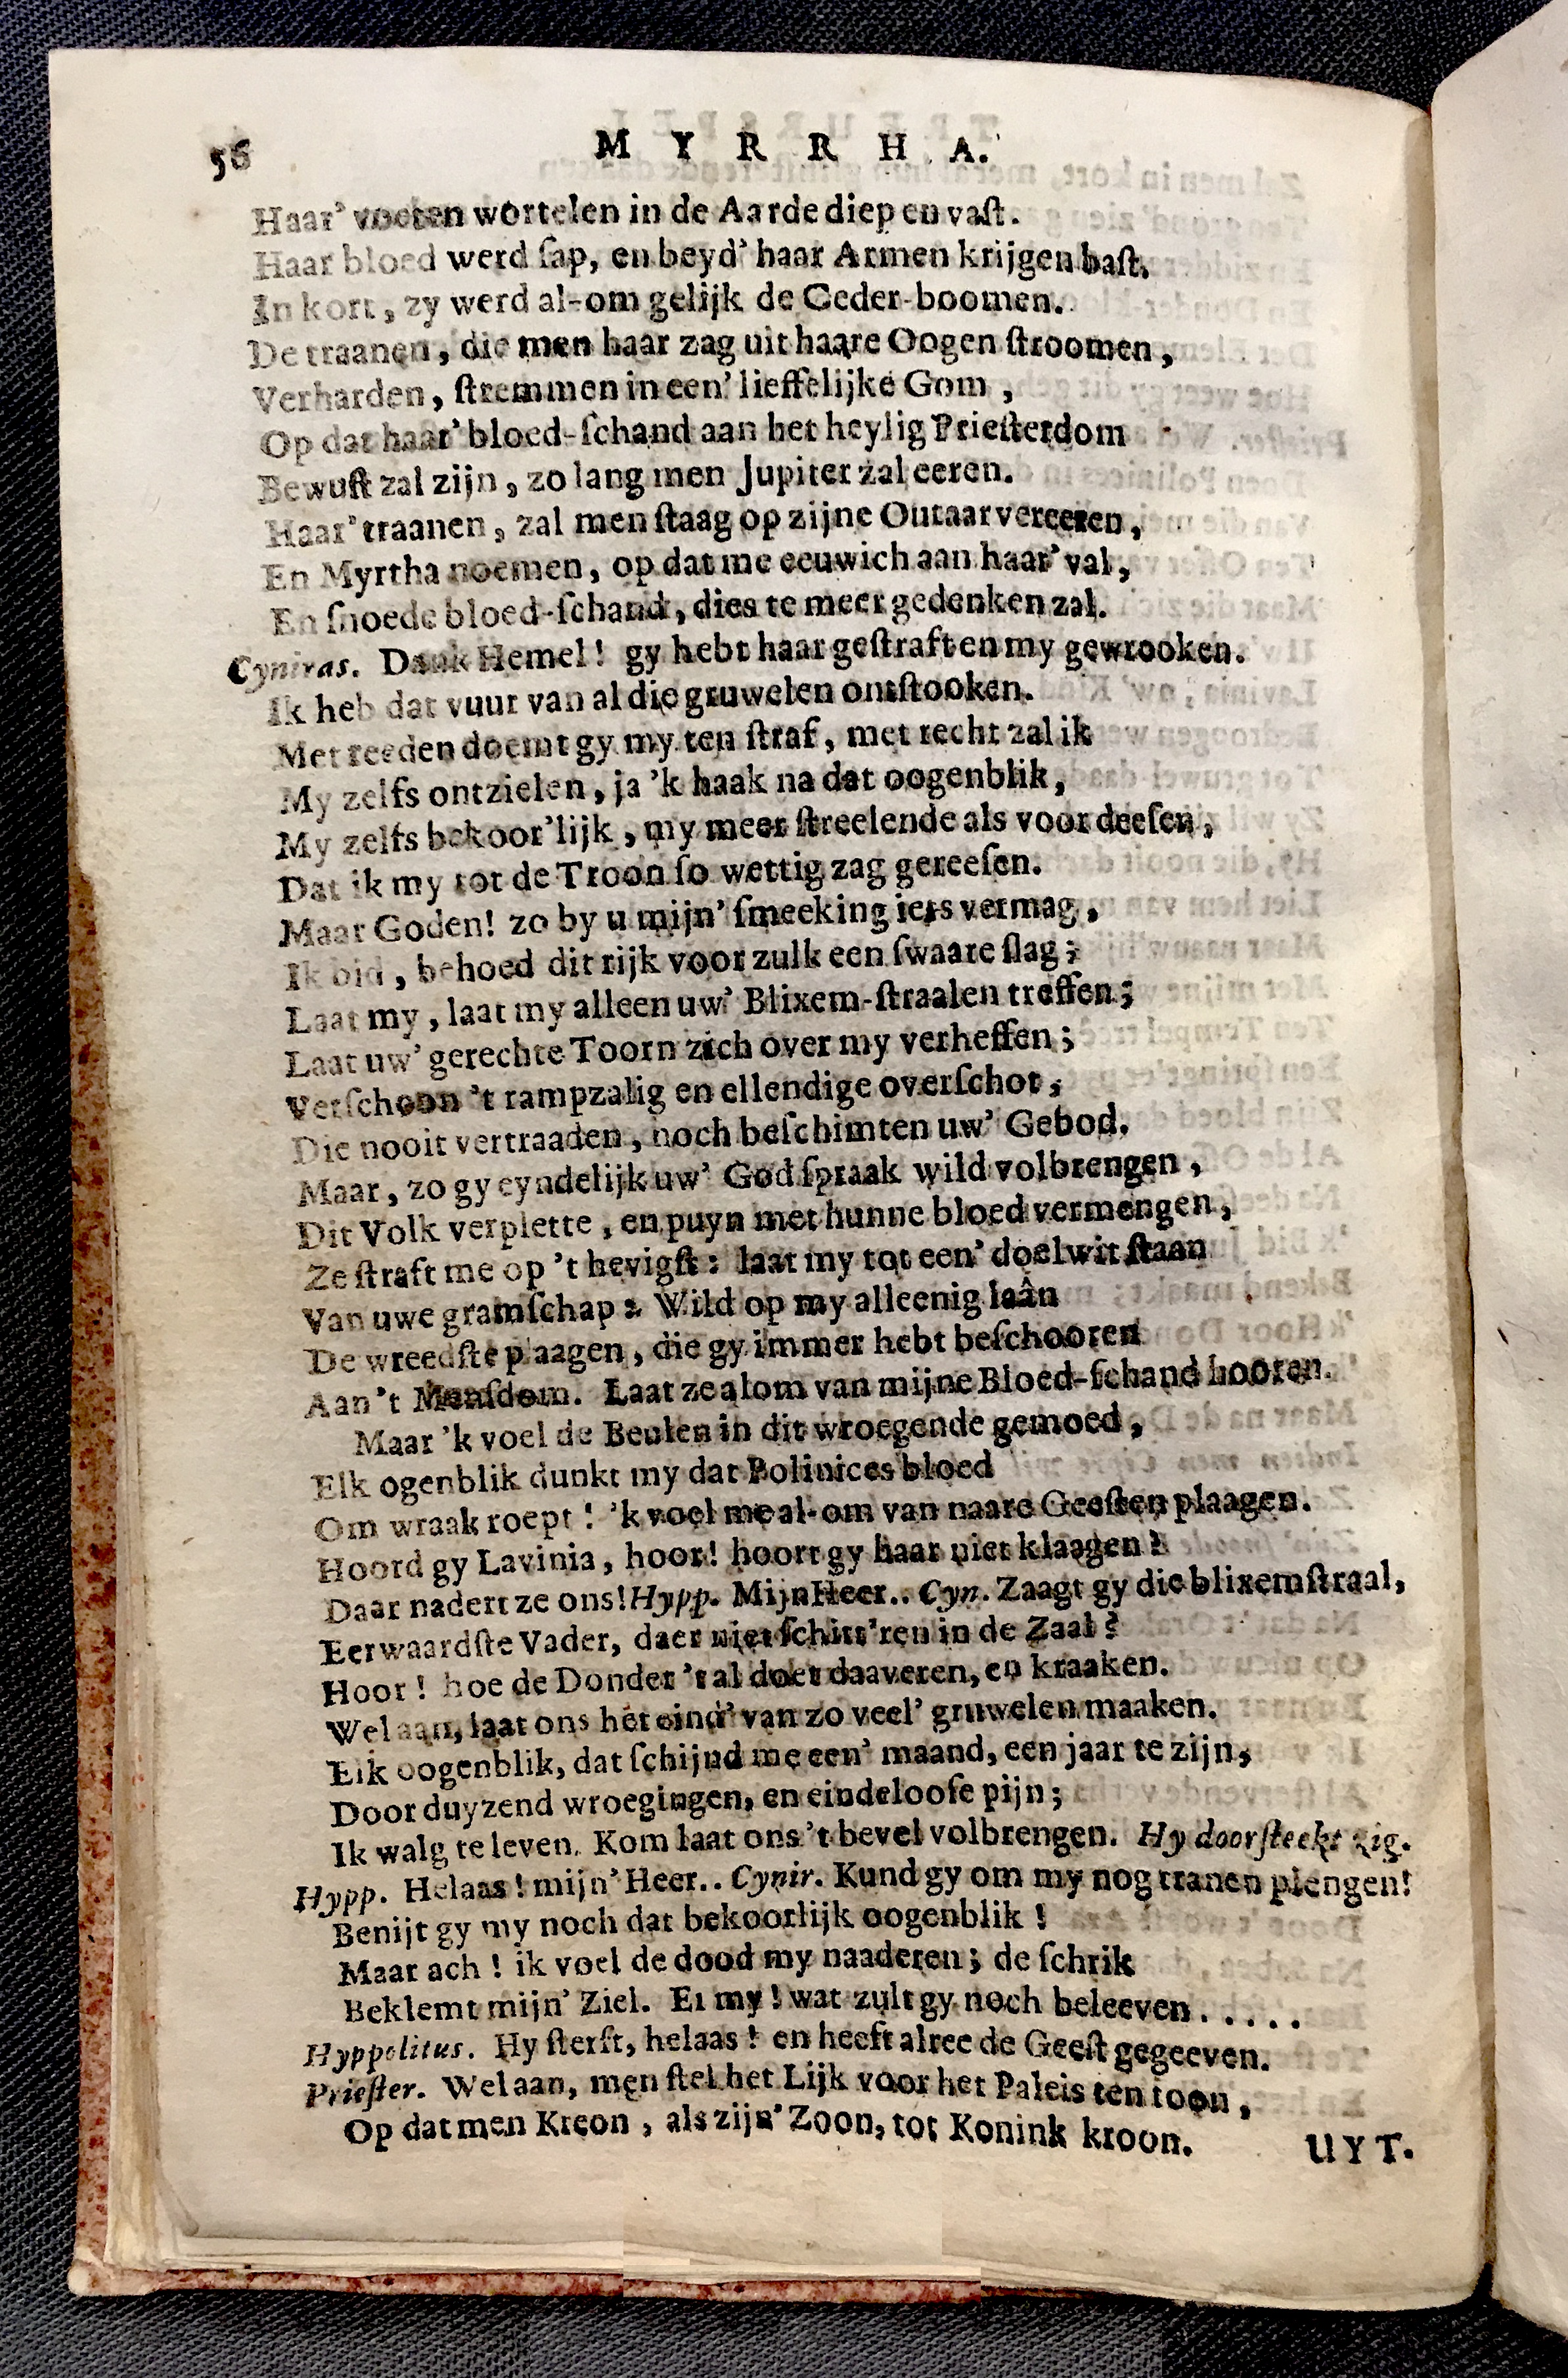 56 MYRRHA.
Haar' voeten wortelen in de Aarde diep en vaſt.
Haar bloed werd ſap, en beyd' haar Armen krijgen baſt.
In kort, zy werd al-om gelijk de Ceder-boomen.
De traanen, die men haar zag uit haare Oogen ſtroomen,
Verharden, ſtremmen in een' lieffelijke Gom,
Op dat haar' bloed-ſchand aan het heylig Prieſterdom
Bewuſt zal zijn, zo lang men Jupiter zal eeren.
Haar' traanen, zal men ſtaag op zijne Outaar vereeren,
En Myrrha noemen, op dat me eeuwich aan haar' val,
En ſnoede bloed-ſchand, dies te meer gedenken zal.
Cyniras. Dank Hemel! gy hebt haar geſtraft en my gewrooken.
Ik heb dat vuur van al die gruwelen ontſtooken.
Met reeden doemt gy my ten ſtraf, met recht zal ik
My zelfs ontzielen, ja 'k haak na dat oogenblik,
My zelfs bekoor'lijk, my meer ſtreelende als voor deeſen,
Dat ik my tot de Troon ſo wettig zag gereeſen.
Maar Goden! zo by u mijn' ſmeeking iets vermag,
Ik bid, behoed dit rijk voor zulk een ſwaare ſlag;
Laat my, laat my alleen uw' Blixem-ſtraalen treffen;
Laat uw' gerechte Toorn zich over my verheffen;
Verſchoon 't rampzalig en ellendige overſchot,
Die nooit vertraaden, noch beſchimten uw' Gebod.
Maar, zo gy eyndelijk uw' Godſpraak wild volbrengen,
Dit Volk verplette, en puyn met hunne bloed vermengen,
Ze ſtraft me op 't hevigſt: laat my tot een' doelwit ſtaan
Van uwe gramſchap: Wild op my alleenig laân
De wreedſte plaagen, die gy immer hebt beſchooren
Aan 't Menſdom. Laat ze alom van mijne Bloed-ſchand hooren.
Maar 'k voel de Beulen in dit wroegende gemoed,
Elk ogenblik dunkt my dat Polinices bloed
Om wraak roept! 'k voel me al-om van naare Geeſten plaagen.
Hoord gy Lavinia, hoor! hoort gy haar niet klaagen?
Daar nadert ze ons! Hypp. Mijn Heer.. Cyn. Zaagt gy die blixemſtraal,
Eerwaardſte Vader, daer niet ſchitt'ren in de Zaal?
Hoor! hoe de Donder 't al doet daaveren, en kraaken.
Wel aan, laat ons het eind' van zo veel' gruwelen maaken.
Elk oogenblik, dat ſchijnd me een' maand, een jaar te zijn,
Door duyzend wroegingen, en eindelooſe pijn;
Ik walg te leven. Kom laat ons 't bevel volbrengen. Hy doorſteekt zig.
Hypp. Helaas! mijn' Heer.. Cynir. Kund gy om my nog tranen plengen!
Benijt gy my noch dat bekoorlijk oogenblik!
Maar ach! ik voel de dood my naaderen; de ſchrik
Beklemt mijn' Ziel. Ei my! wat zult gy noch beleeven.....
Hyppolitus. Hy ſterft, helaas! en heeft alree de Geeſt gegeeven.
Prieſter. Wel aan, men ſtel het Lijk voor het Paleis ten toon,
Op dat men Kreon, als zijn' Zoon, tot Konink kroon.
UYT.